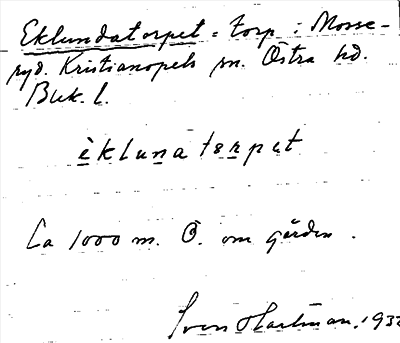 Eklundatorpet = torp i Mosse-
ryd. Kristianopels sn. Östra hd.
Blek. l.
èkluna tɘrpɘt
Ca 1000 m. Ö. om gården.
Sven Hartman, 193